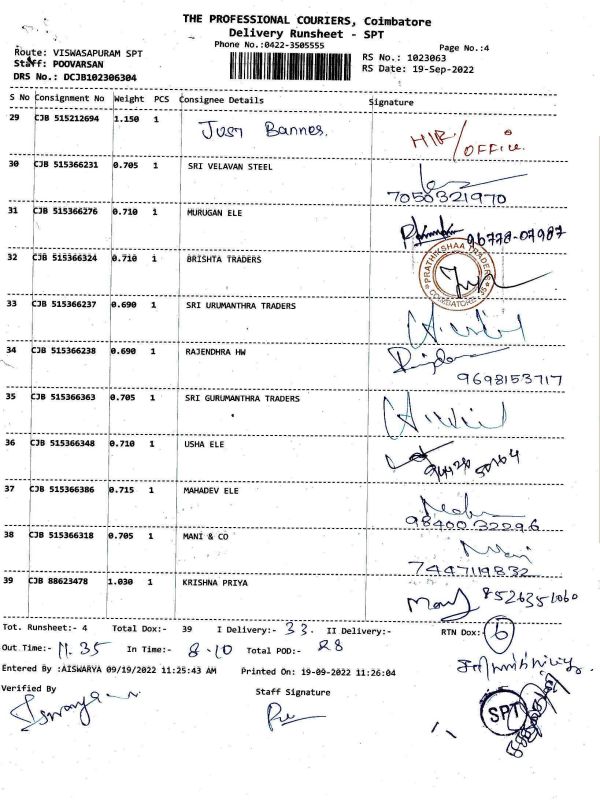 THE PROFESSIONAL COURIERS, Coimbatore
Delivery Runsheet - SPT
Phone No.:0422-3505555
Page No.:4
Route: VISWASAPURAM SPT
RS No.: 1023063
Staff: POOVARSAN
RS Date: 19-Sep-2022
DRS No.: DCJB102306304
S No Consignment No Weight PCS Consignee Details Signature
29 CJB 515212694 1.150 1 Just Bannes. HIR/OFFICE.
30 CJB 515366231 0.705 1 SRI VELAVAN STEEL
7050321970
31 CJB 515366276 0.710 1 MURUGAN ELE 96778-07987
32 CJB 515366324 0.710 1 BRISHTA TRADERS
PRATHIKSHAA TRADERS COIMBATORE
33 CJB 515366237 0.690 1 SRI URUMANTHRA TRADERS
34 CJB 515366238 0.690 1 RAJENDHRA HW
9698153717
35 CJB 515366363 0.705 1 SRI GURUMANTHRA TRADERS
36 CJB 515366348 0.710 1 USHA ELE
37 CJB 515366386 0.715 1 MAHADEV ELE
98400 32296
38 CJB 515366318 0.705 1 MANI & CO Mani
7447119832
39 CJB 88623478 1.030 1 KRISHNA PRIYA 8526351060
Tot. Runsheet:- 4 Total Dox:- 39 I Delivery:- 33. II Delivery:- RTN Dox:- 6
Out Time:- 11.35 In Time:- 8-10 Total POD:- 28
Entered By :AISWARYA 09/19/2022 11:25:43 AM Printed On: 19-09-2022 11:26:04
Verified By Staff Signature
SPT